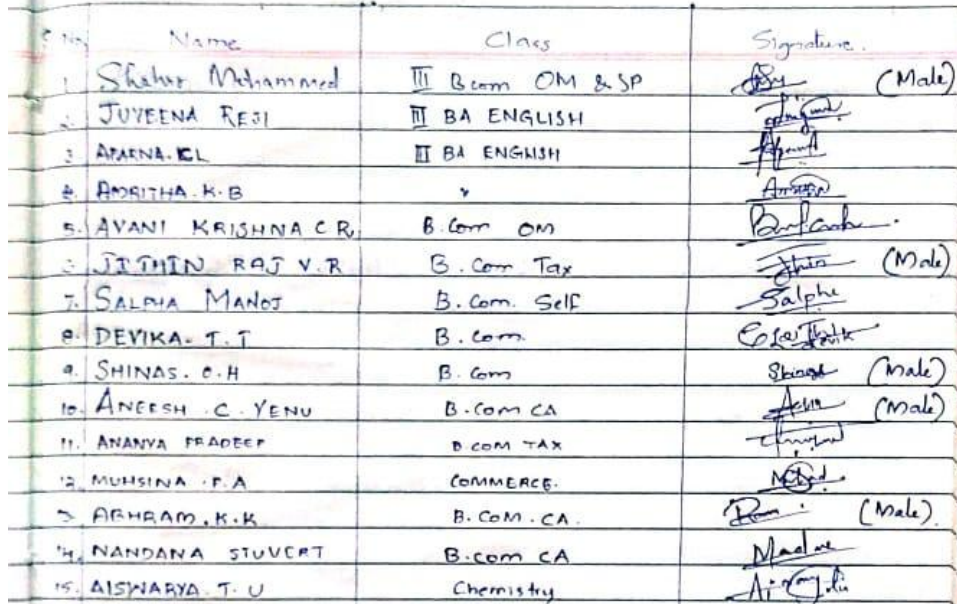 No. Name Class Signature.
1. Shahur Mohammed III Bcom OM & SP (Male)
2. JUVEENA REJI III BA ENGLISH
3. APARNA. KL III BA ENGLISH
4. AMRITHA. K. B "
5. AVANI KRISHNA C R B. Com OM
6. JITHIN RAJ V. R B. Com Tax (Male)
7. SALPHA MANOJ B. Com. Self Salpha
8. DEVIKA. T. T B. Com.
9. SHINAS. O. H B. Com Shinas (Male)
10. ANEESH. C. VENU B. Com CA (Male)
11. ANANYA PRADEEP B.COM TAX
12. MUHSINA. P. A COMMERCE.
ABHRAM. K. K B. COM. CA. (Male).
14. NANDANA STUVERT B.com CA
15. AISWARYA. T. U Chemistry